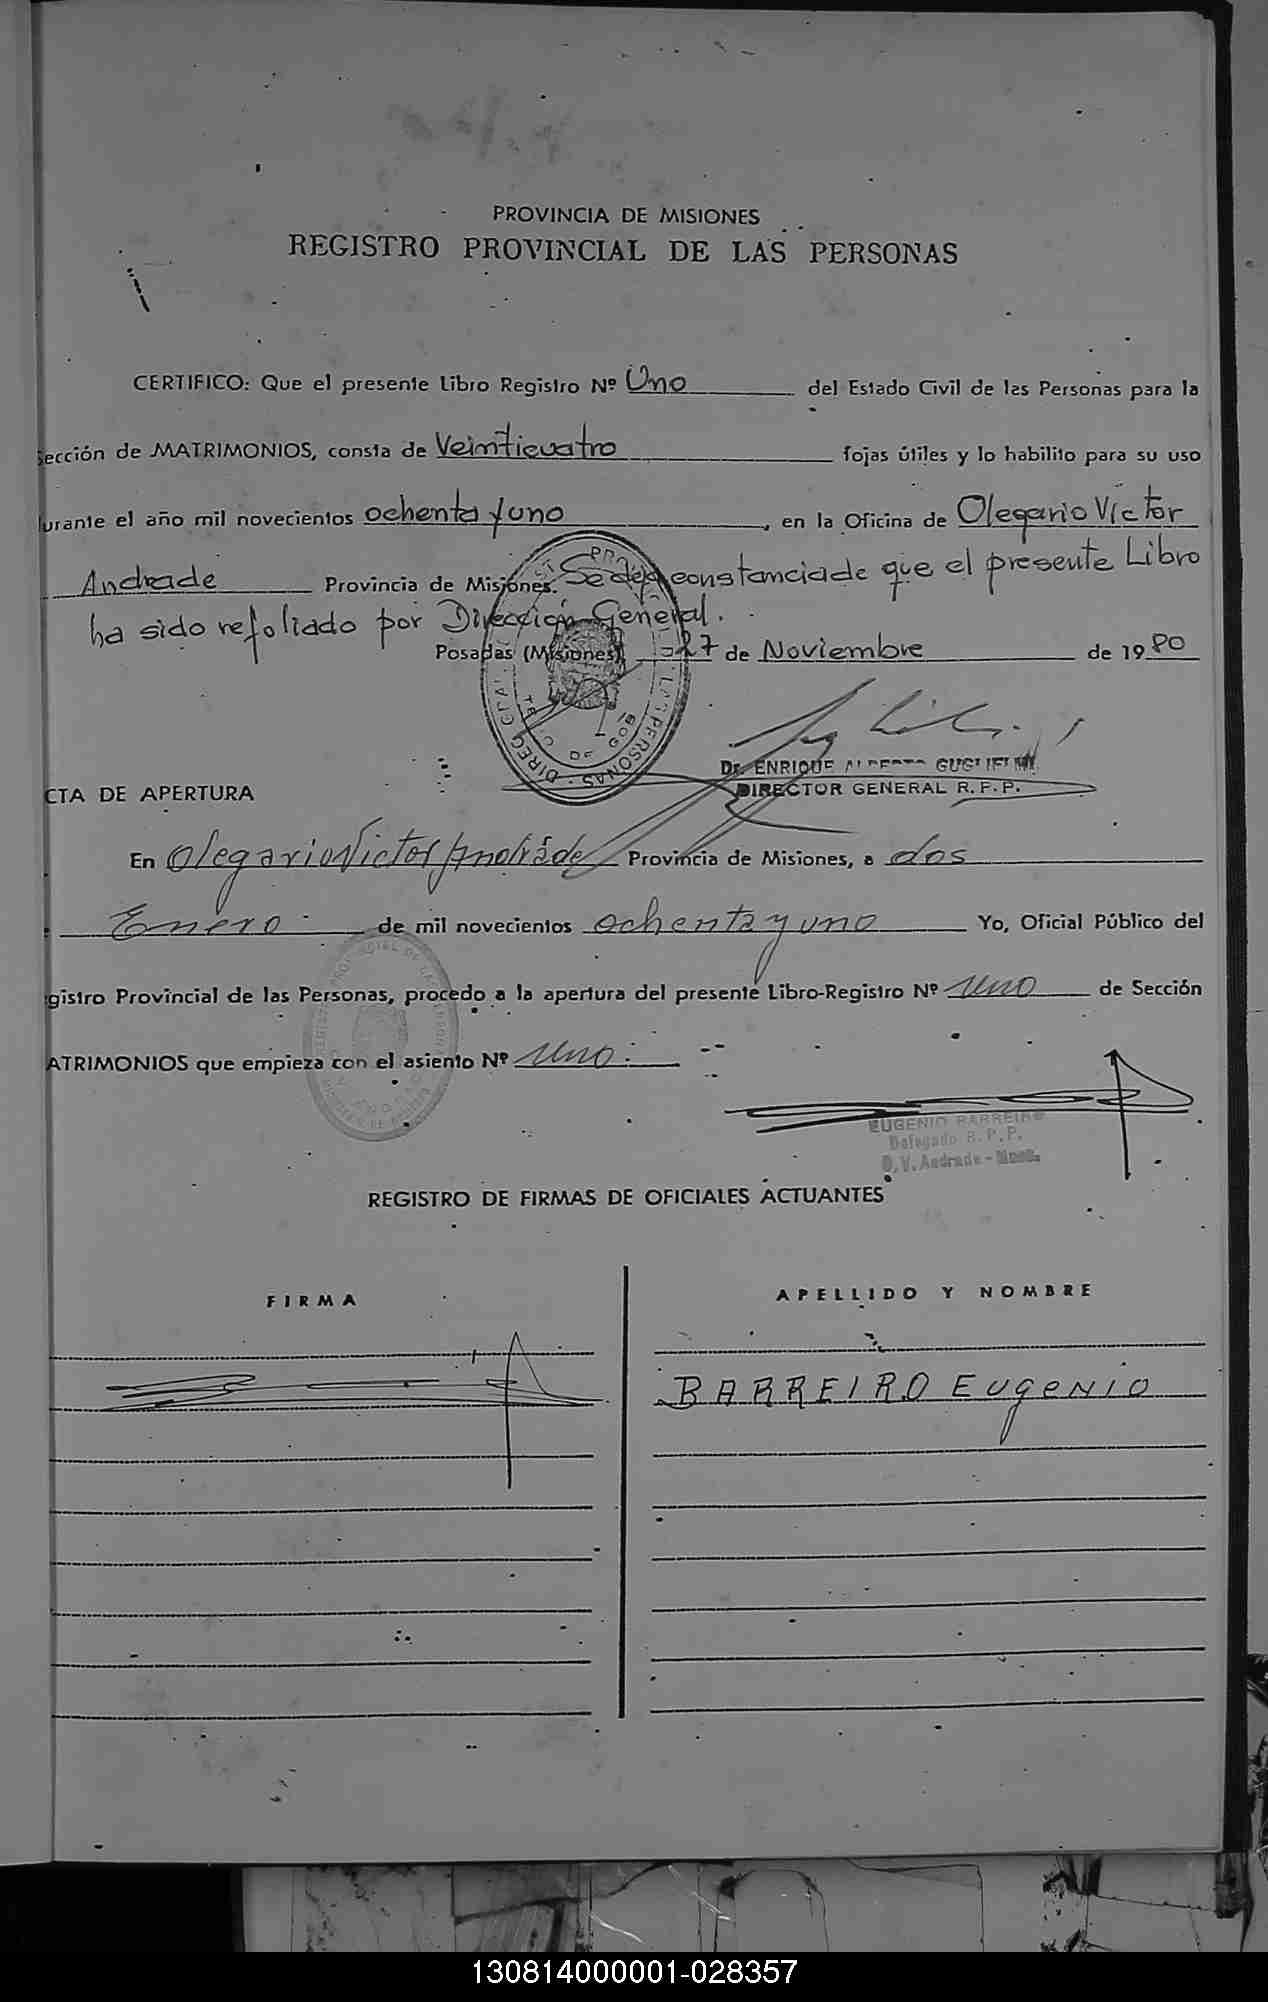 PROVINCIA DE MISIONES
REGISTRO PROVINCIAL DE LAS PERSONAS
CERTIFICO: Que el presente Libro Registro Nº Uno del Estado Civil de las Personas para la
ección de MATRIMONIOS, consta de Veinticuatro fojas útiles y lo habilito para su uso
urante el año mil novecientos ochenta y uno, en la Oficina de Olegario Víctor
Andrade Provincia de Misiones. Se deja constancia de que el presente Libro
ha sido refoliado por Dirección General.
Posadas (Misiones), 27 de Noviembre de 1980
Dr. ENRIQUE ALBERTO GUGLIELMI
DIRECTOR GENERAL R.P.P.
CTA DE APERTURA
En Olegario Victor Andrade Provincia de Misiones, a dos
Enero de mil novecientos ochenta y uno Yo, Oficial Público del
gistro Provincial de las Personas, procedo a la apertura del presente Libro-Registro Nº uno de Sección
ATRIMONIOS que empieza con el asiento Nº uno
EUGENIO BARREIRO
Delegado R.P.P.
O.V. Andrade - Mnes.
REGISTRO DE FIRMAS DE OFICIALES ACTUANTES
FIRMA APELLIDO Y NOMBRE
BARREIRO EUgeNIO
130814000001-028357